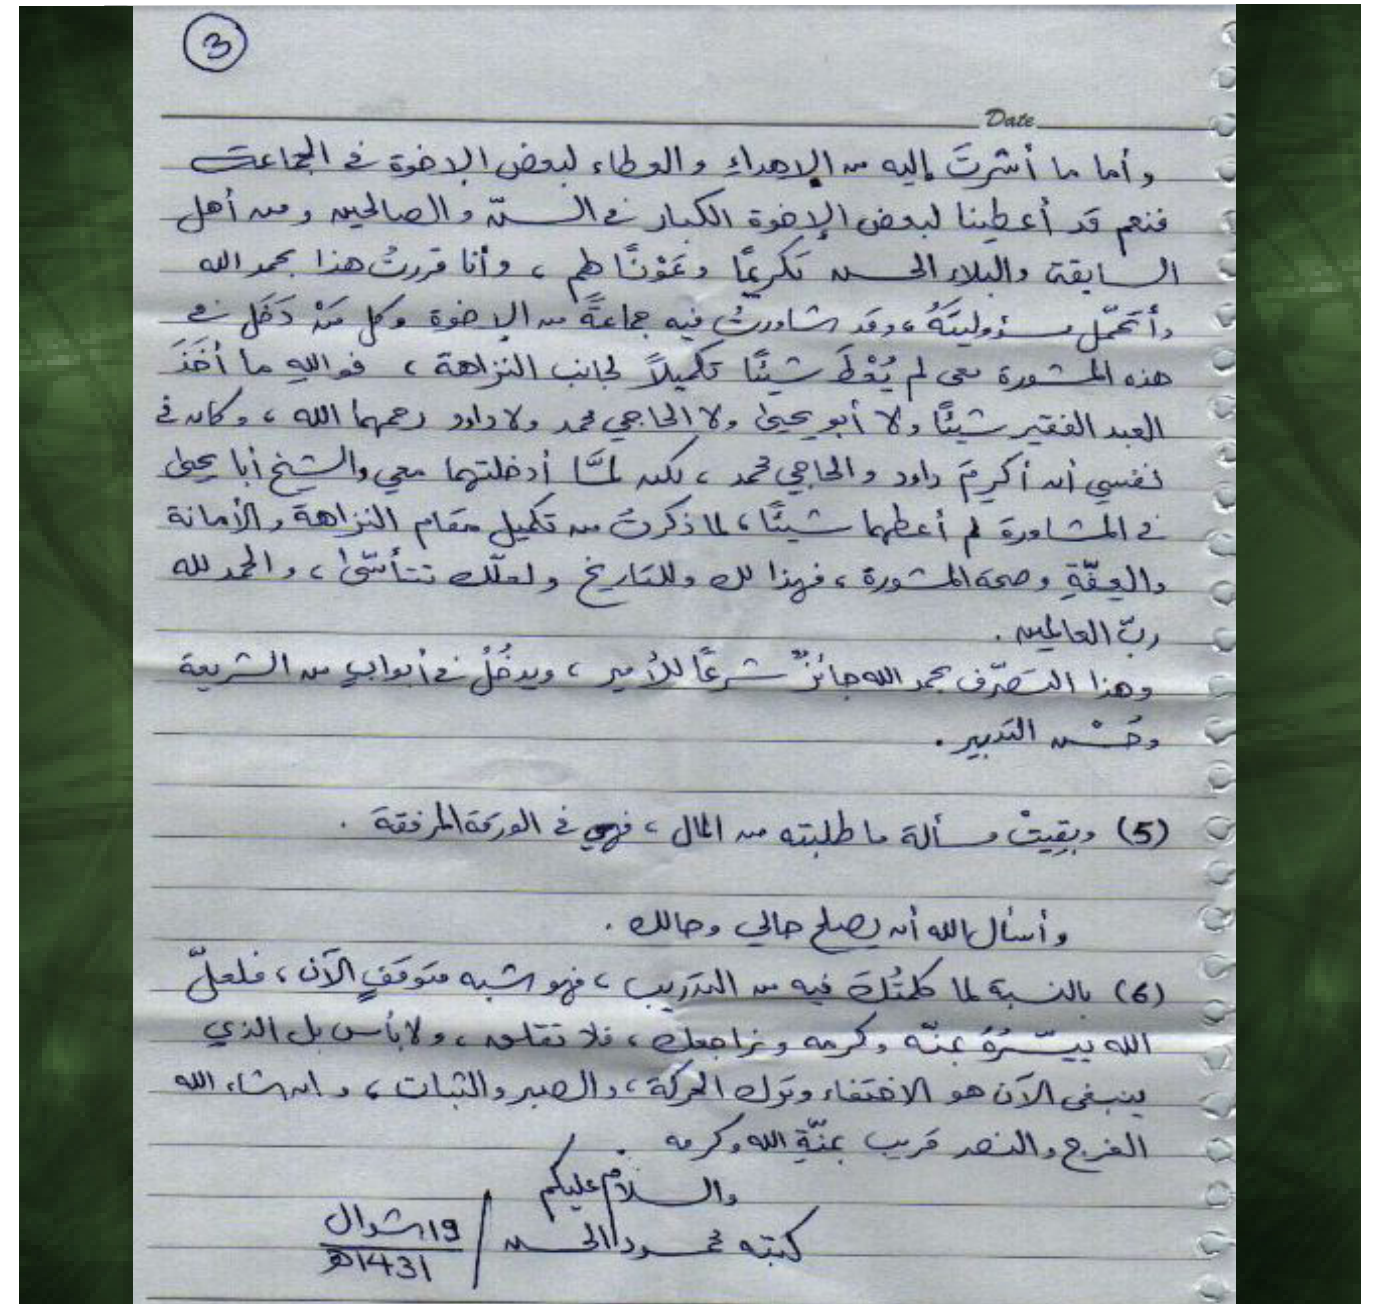 3
Date
وأما ما أشرتَ إليه من الإهداءِ والعطاء لبعض الإخوة في الجماعة
فنعم قد أعطينا لبعض الإخوة الكبار في السنّ والصالحين ومن أهل
السابقة والبلاء الحسن تكريمًا وعَوْنًا لهم ، وأنا قررتُ هذا بحمد الله
وأتحمّل مسؤوليتَهُ ، وقد شاورتُ فيه جماعةً من الإخوة وكل مَنْ دَخَل في
هذه المشورة معي لم يُعْطَ شيئًا تكميلاً لجانب النزاهة ، فواللهِ ما أخَذَ
العبد الفقير شيئًا ولا أبو يحيى ولا الحاجي محمد ولا داود رحمهما الله ، وكان في
نفسي أن أكرِمَ داود والحاجي محمد ، لكن لمَّا أدخلتهما معي والشيخ أبا يحيى
في المشاورة لم أعطهما شيئًا ، لما ذكرت من تكميل مقام النزاهة والأمانة
والعِفّةِ وصحة المشورة ، فهذا لك وللتاريخ ولعلّك تتأسّى ، والحمد لله
ربّ العالمين .
وهذا التصَرّف بحمد الله جائزٌ شرعًا للأمير ، ويدخُلُ في أبوابٍ من الشريعة
وحُسْن التدبير .
(5) وبقِيَتْ مسألة ما طلبته من المال ، فهي في الورقة المرفقة .
وأسأل الله أن يصلح حالي وحالك .
(6) بالنسبة لما كلمتُكَ فيه من التدريب ، فهو شبه متوقفٍ الآن ، فلعلّ
الله ييسّرُهُ بمنّه وكرمه ونراجعك ، فلا تقلق ، ولا بأس بل الذي
ينبغي الآن هو الاختفاء وترك الحركة ، والصبر والثبات ، وإن شاء الله
الفرج والنصر قريب بمنّةِ الله وكرمه
والسلام عليكم
كتبه محمود الحسن / 19 شوال
1431هـ